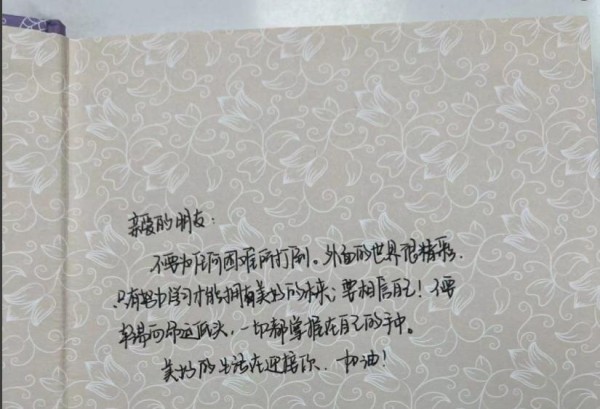 亲爱的朋友：
不要为任何困难所打倒。外面的世界很精彩.
只有努力学习才能拥有美好的未来；要相信自己！不要
轻易向命运低头，一切都掌握在自己的手中。
美好的生活在迎接你．加油！